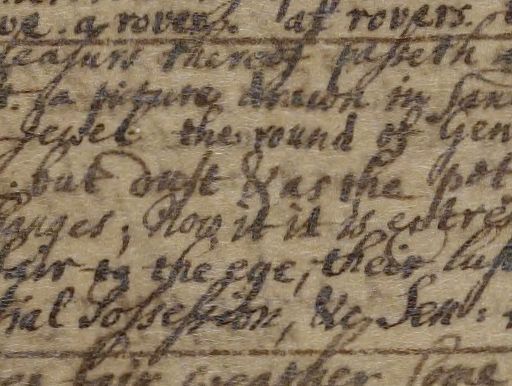 a rover. at rovers.
pleasure thereof passeth
a picture drawn in San
Jewel the round of Gen
but dust & as the pet
Now if it is extre
fair to the eye, their lus
tial Possession, &c. Sen:
fair weather some